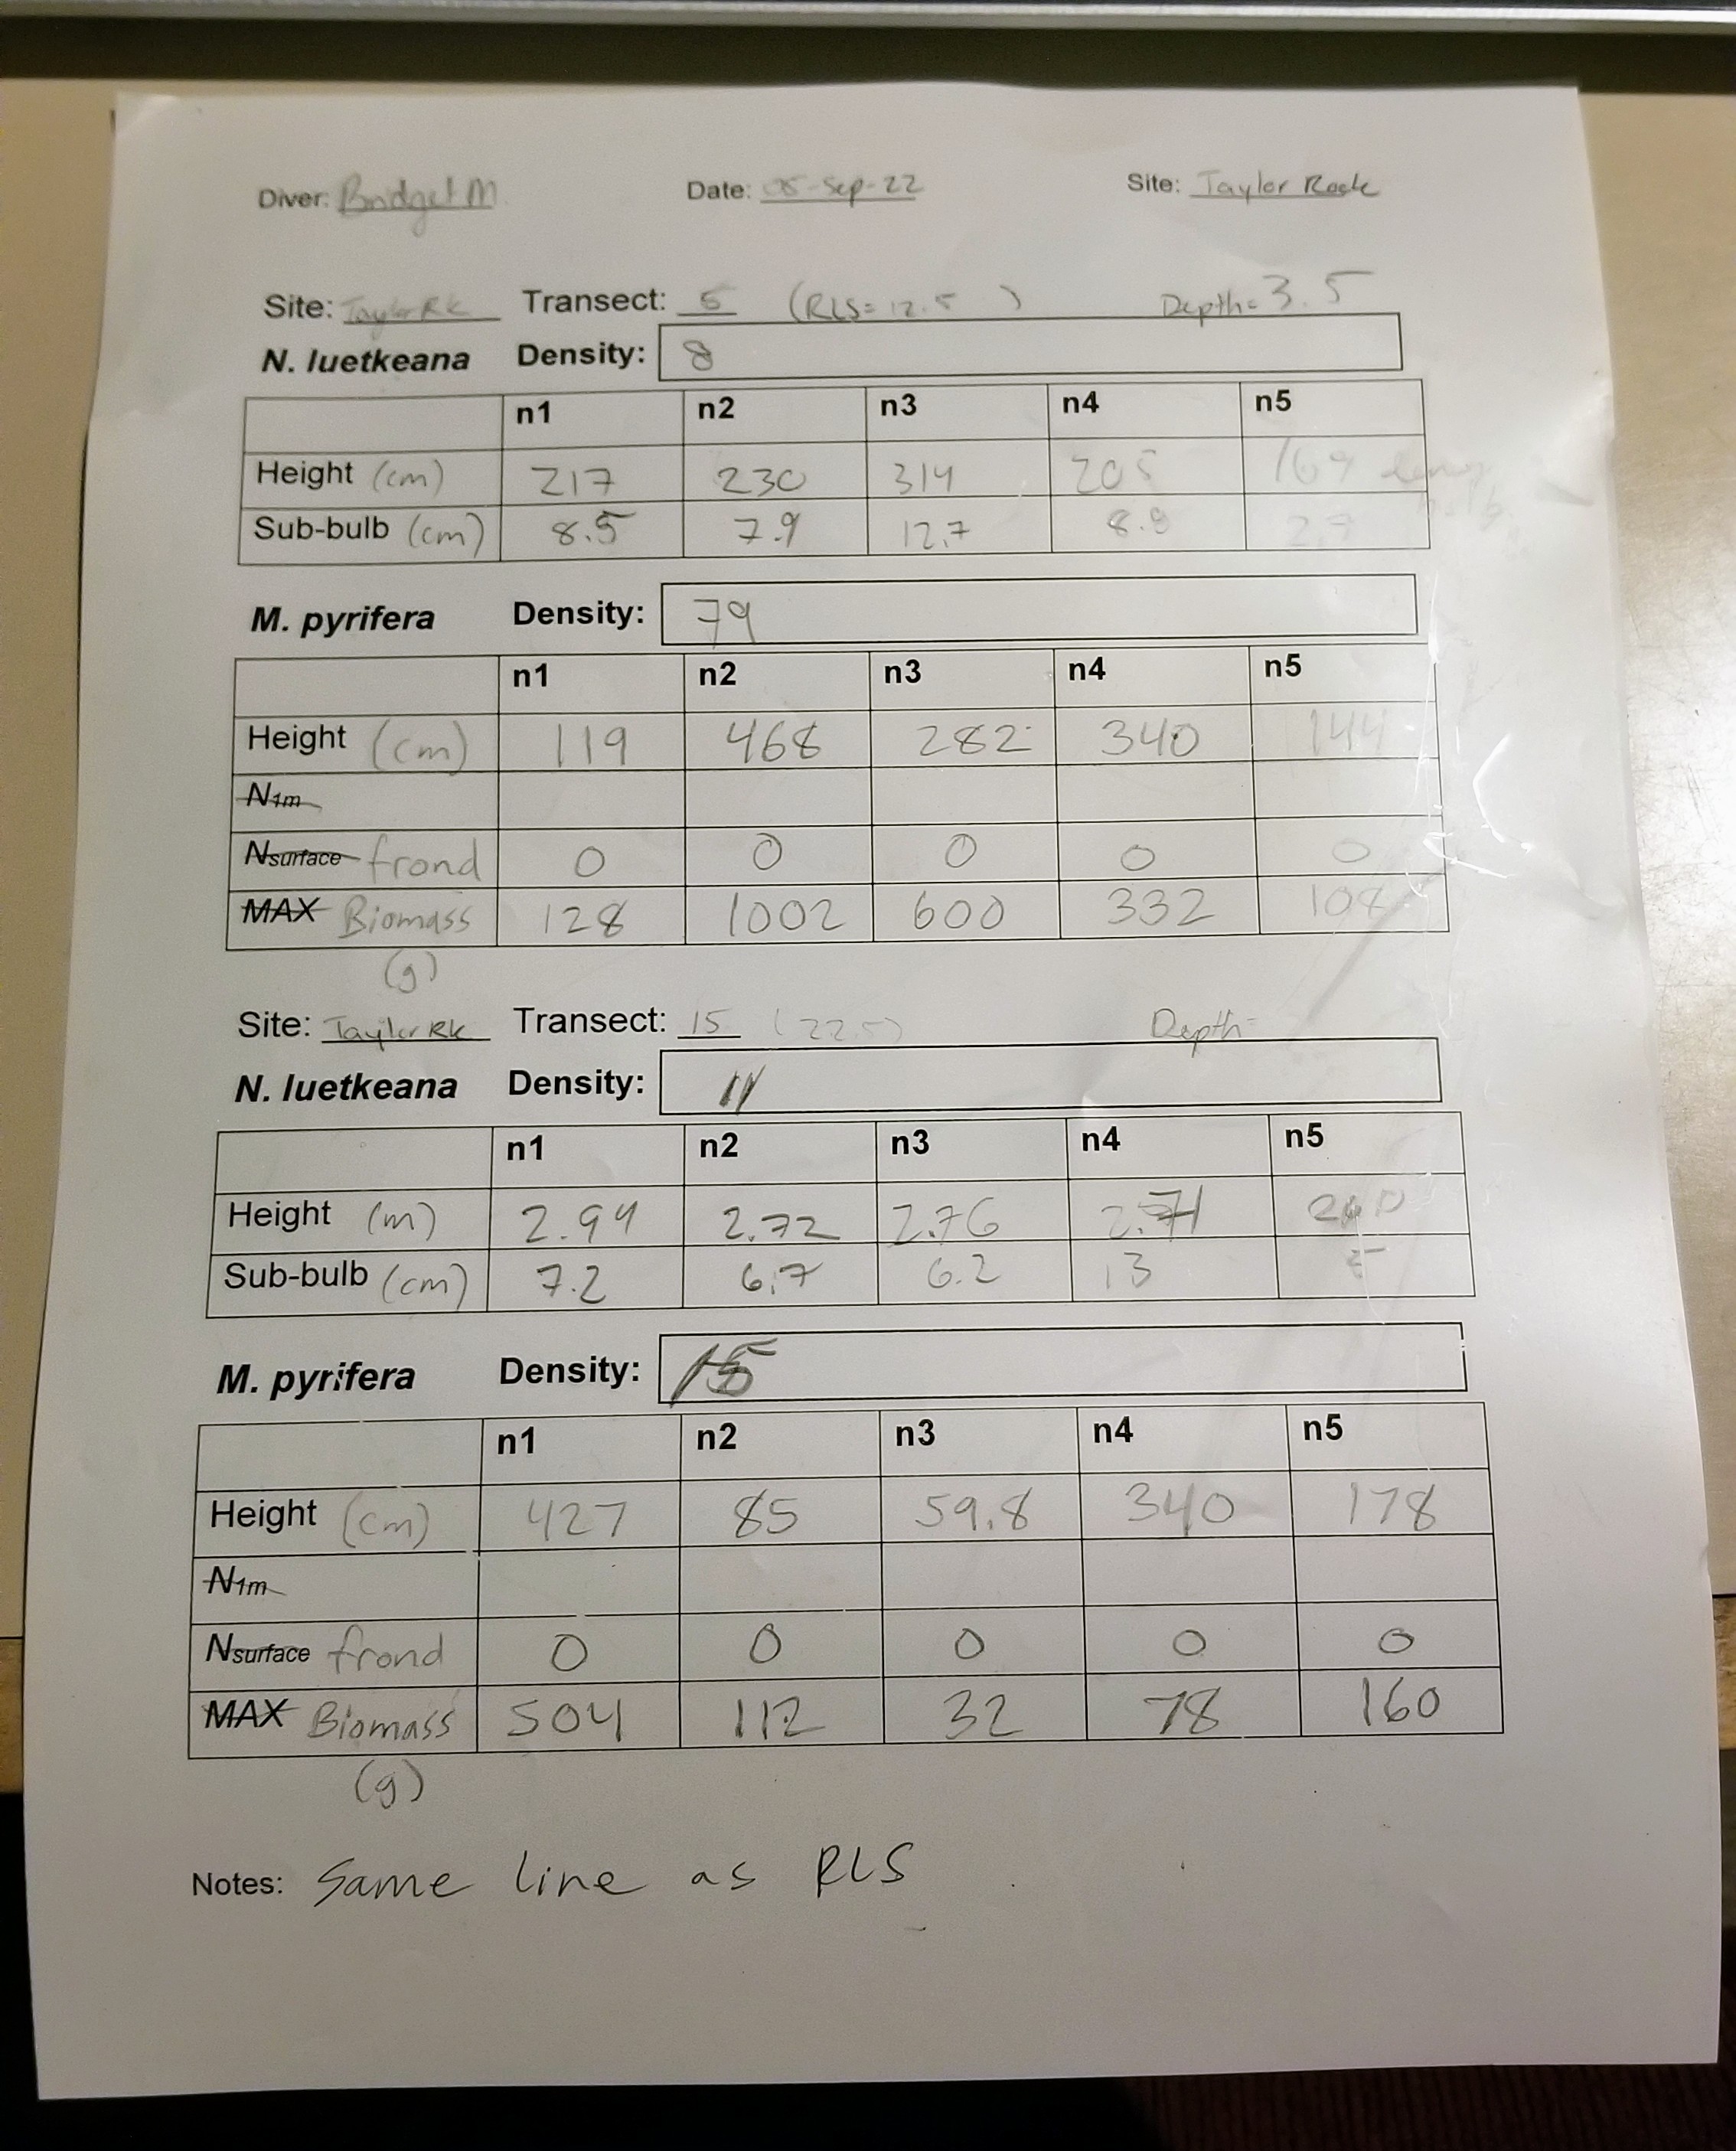 Diver: Bridget M. Date: 05-Sep-22 Site: Taylor Rock
Site: Taylor Rk Transect: 5 (RLS= 12.5 ) Depth= 3.5
N. luetkeana Density: 8
n1 n2 n3 n4 n5
Height (cm) 217 230 314 205 169
Sub-bulb (cm) 8.5 7.9 12.7 8.9 2.7
M. pyrifera Density: 79
n1 n2 n3 n4 n5
Height (cm) 119 468 282 340 144
N1m
Nsurface frond 0 0 0 0 0
MAX Biomass 128 1002 600 332 104
(g)
Site: Taylor Rk Transect: 15 (22.5) Depth
N. luetkeana Density: 11
n1 n2 n3 n4 n5
Height (m) 2.94 2.72 2.76 2.71
Sub-bulb (cm) 7.2 6.7 6.2 13
M. pyrifera Density: 15
n1 n2 n3 n4 n5
Height (cm) 427 85 59.8 340 178
N1m
Nsurface frond 0 0 0 0 0
MAX Biomass 504 112 32 78 160
(g)
Notes: Same line as RLS